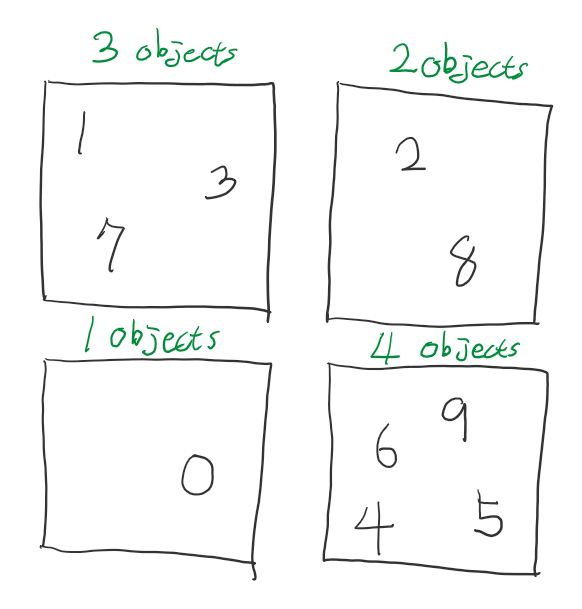 3 objects
1
3
7
2 objects
2
8
1 objects
0
4 objects
9
6
4
5